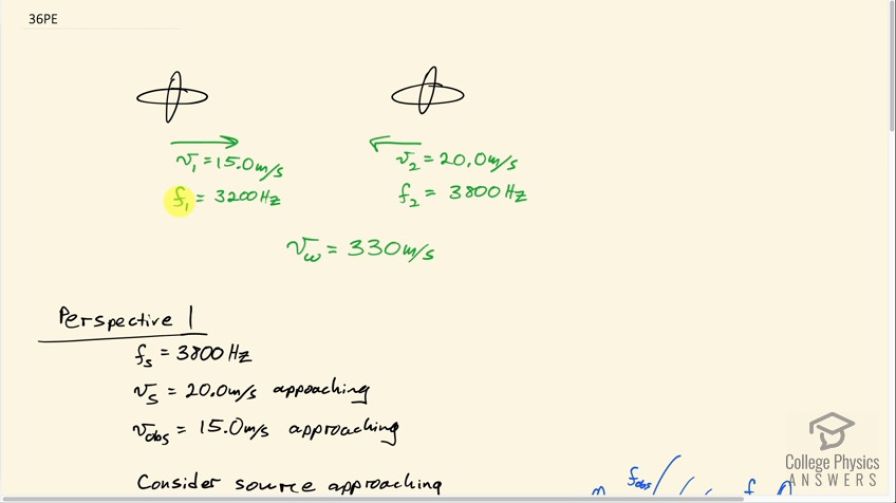 36PE
v₁ = 15.0 m/s
v₂ = 20.0 m/s
f₁ = 3200 Hz
f₂ = 3800 Hz
v_w = 330 m/s
Perspective 1
f_s = 3800 Hz
v_s = 20.0 m/s appoaching
v_obs = 15.0 m/s approaching
Consider source approaching
f_obs
College Physics
ANSWERS